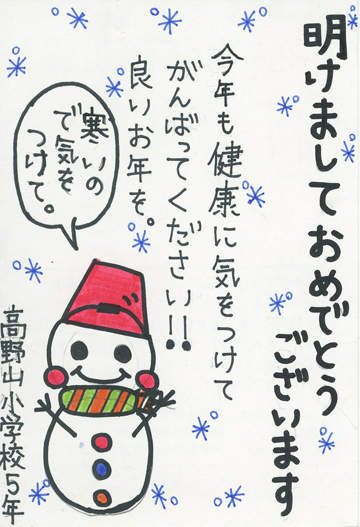 明けましておめでとう
ございます
今年も健康に気をつけて
がんばってください!!
良いお年を。
寒いの
で気を
つけて。
高野山小学校5年